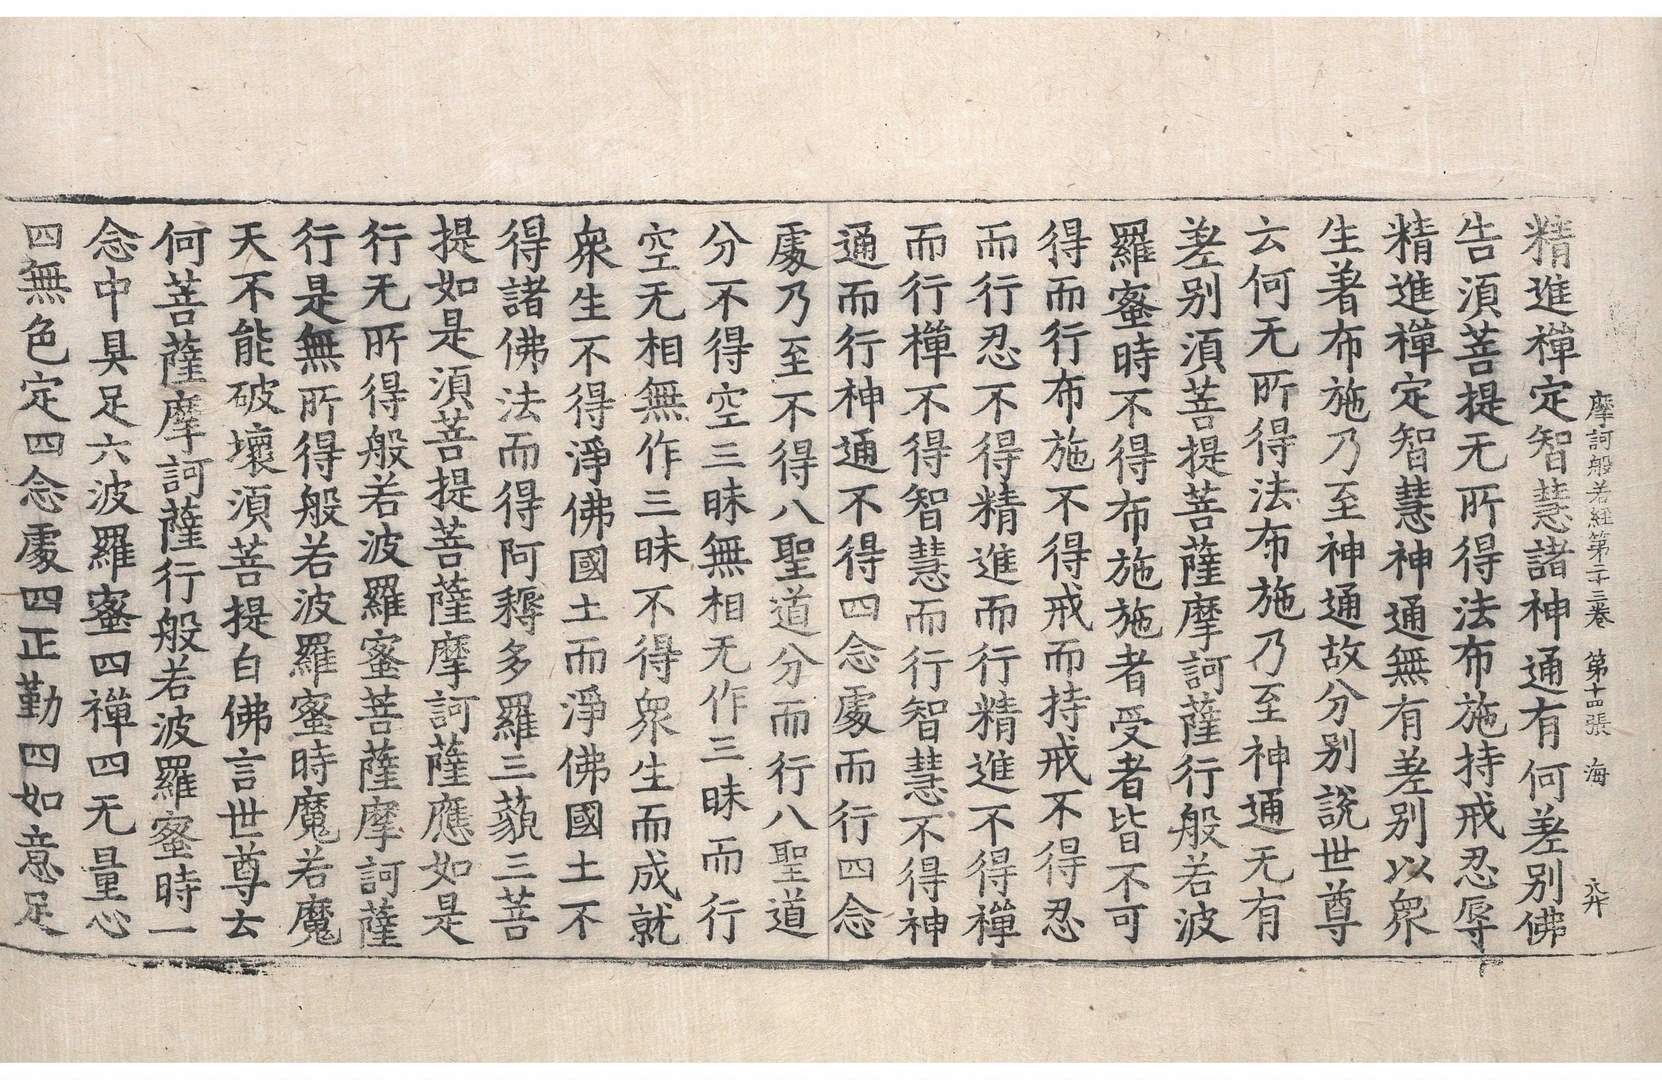 摩訶般若經第二十三卷 第十四張 海
精進禪定智慧諸神通有何差別佛
告須菩提无所得法布施持戒忍辱
精進禪定智慧神通無有差別以衆
生著布施乃至神通故分別說世尊
云何无所得法布施乃至神通无有
差別須菩提菩薩摩訶薩行般若波
羅蜜時不得布施施者受者皆不可
得而行布施不得戒而持戒不得忍
而行忍不得精進而行精進不得禪
而行禪不得智慧而行智慧不得神
通而行神通不得四念處而行四念
處乃至不得八聖道分而行八聖道
分不得空三昧無相无作三昧而行
空无相無作三昧不得衆生而成就
衆生不得淨佛國土而淨佛國土不
得諸佛法而得阿耨多羅三藐三菩
提如是須菩提菩薩摩訶薩應如是
行无所得般若波羅蜜菩薩摩訶薩
行是無所得般若波羅蜜時魔若魔
天不能破壞須菩提白佛言世尊云
何菩薩摩訶薩行般若波羅蜜時一
念中具足六波羅蜜四禪四无量心
四無色定四念處四正勤四如意足